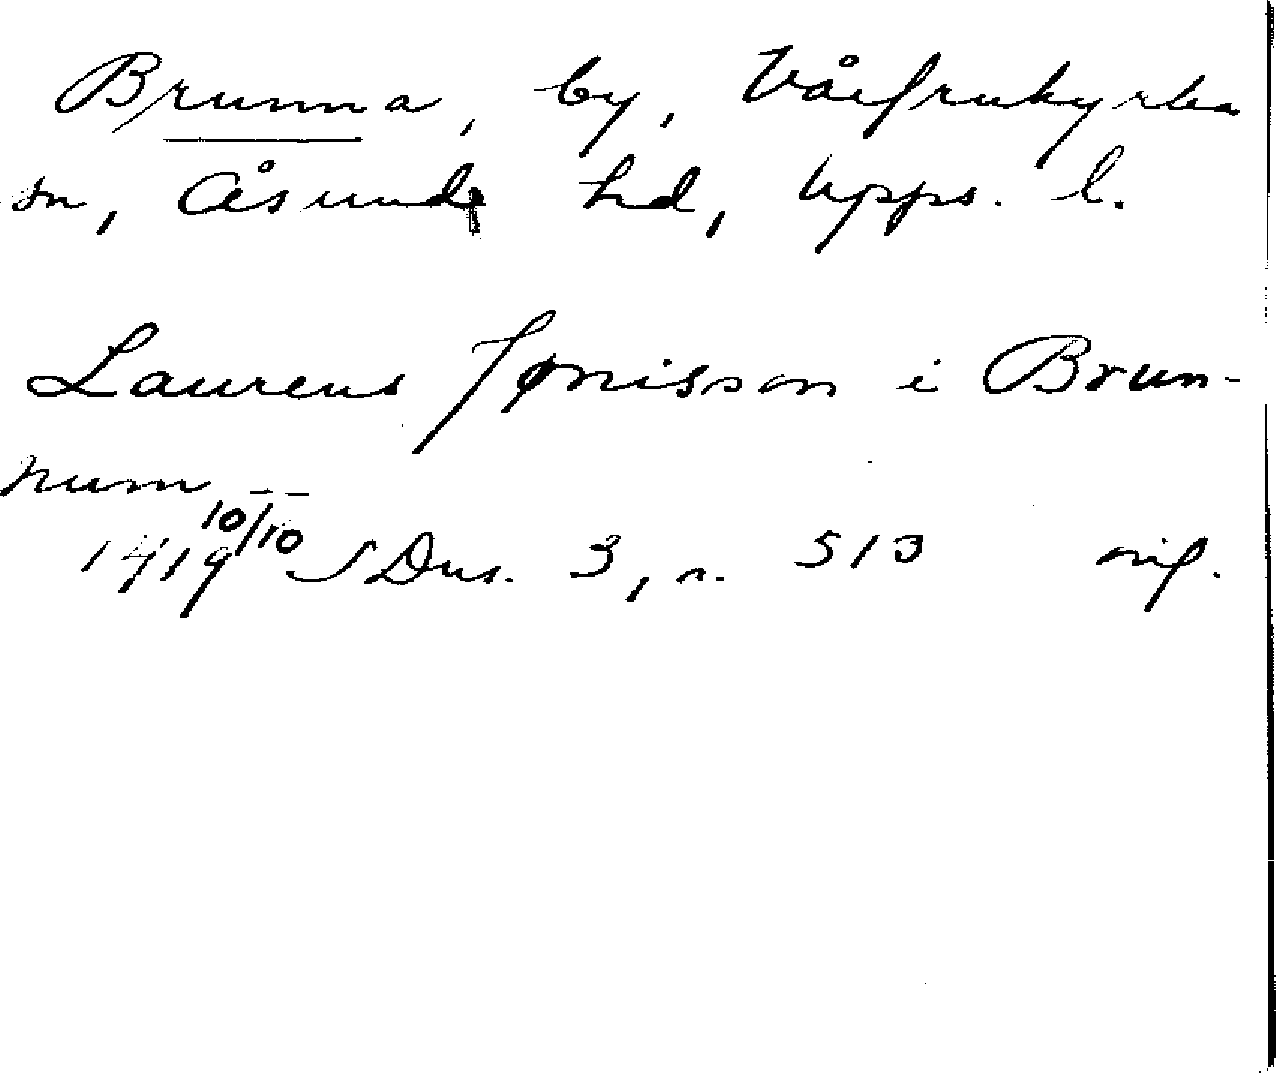 Brunna, by, Vårfrukyrka
sn, Åsunda hd, Upps. l.
Laurens Jønisson i Brun-
num --
1419 10/10 SDns. 3, n. 513 orig.